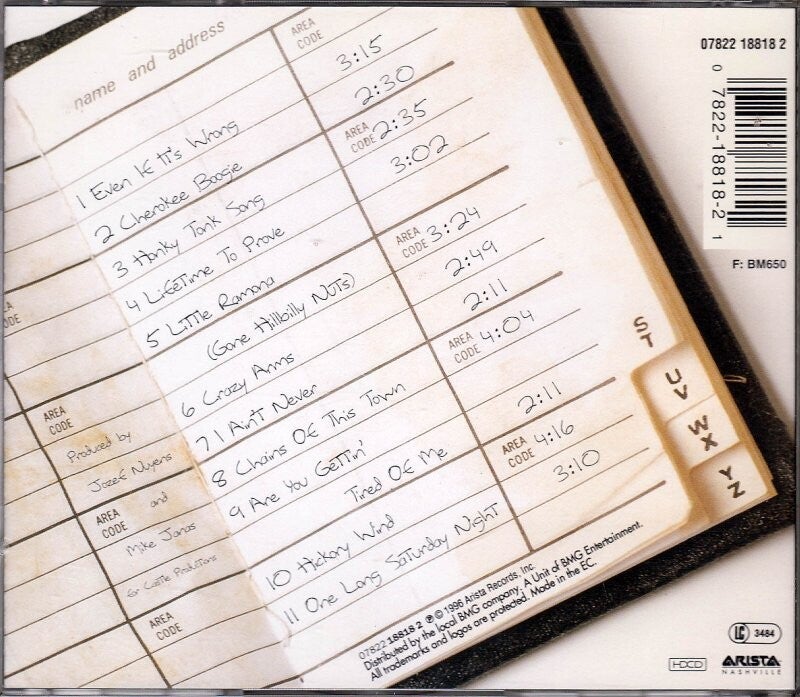 name and address
AREA CODE
1 Even If It's Wrong 3:15
2 Cherokee Boogie 2:30
AREA CODE
3 Honky Tonk Song 2:35
4 LifeTime To Prove 3:02
5 Little Ramona
(Gone Hillbilly Nuts) 3:24
AREA CODE
6 Crazy Arms 2:49
7 I Ain't Never 2:11
AREA CODE
8 Chains Of This Town 4:04
9 Are You Gettin'
Tired Of Me 2:11
AREA CODE
10 Hickory Wind 4:16
11 One Long Saturday Night 3:10
AREA CODE
Produced by
Jozef Nuyens
AREA CODE
and
Mike Janas
for Castle Productions
AREA CODE
S
T
U
V
W
X
Y
Z
07822 18818 2 ℗ © 1996 Arista Records, Inc.
Distributed by the local BMG company. A Unit of BMG Entertainment.
All trademarks and logos are protected. Made in the EC.
07822 18818 2
0 7822-18818-2 1
F: BM650
LC 3484
HDCD
ARISTA
NASHVILLE